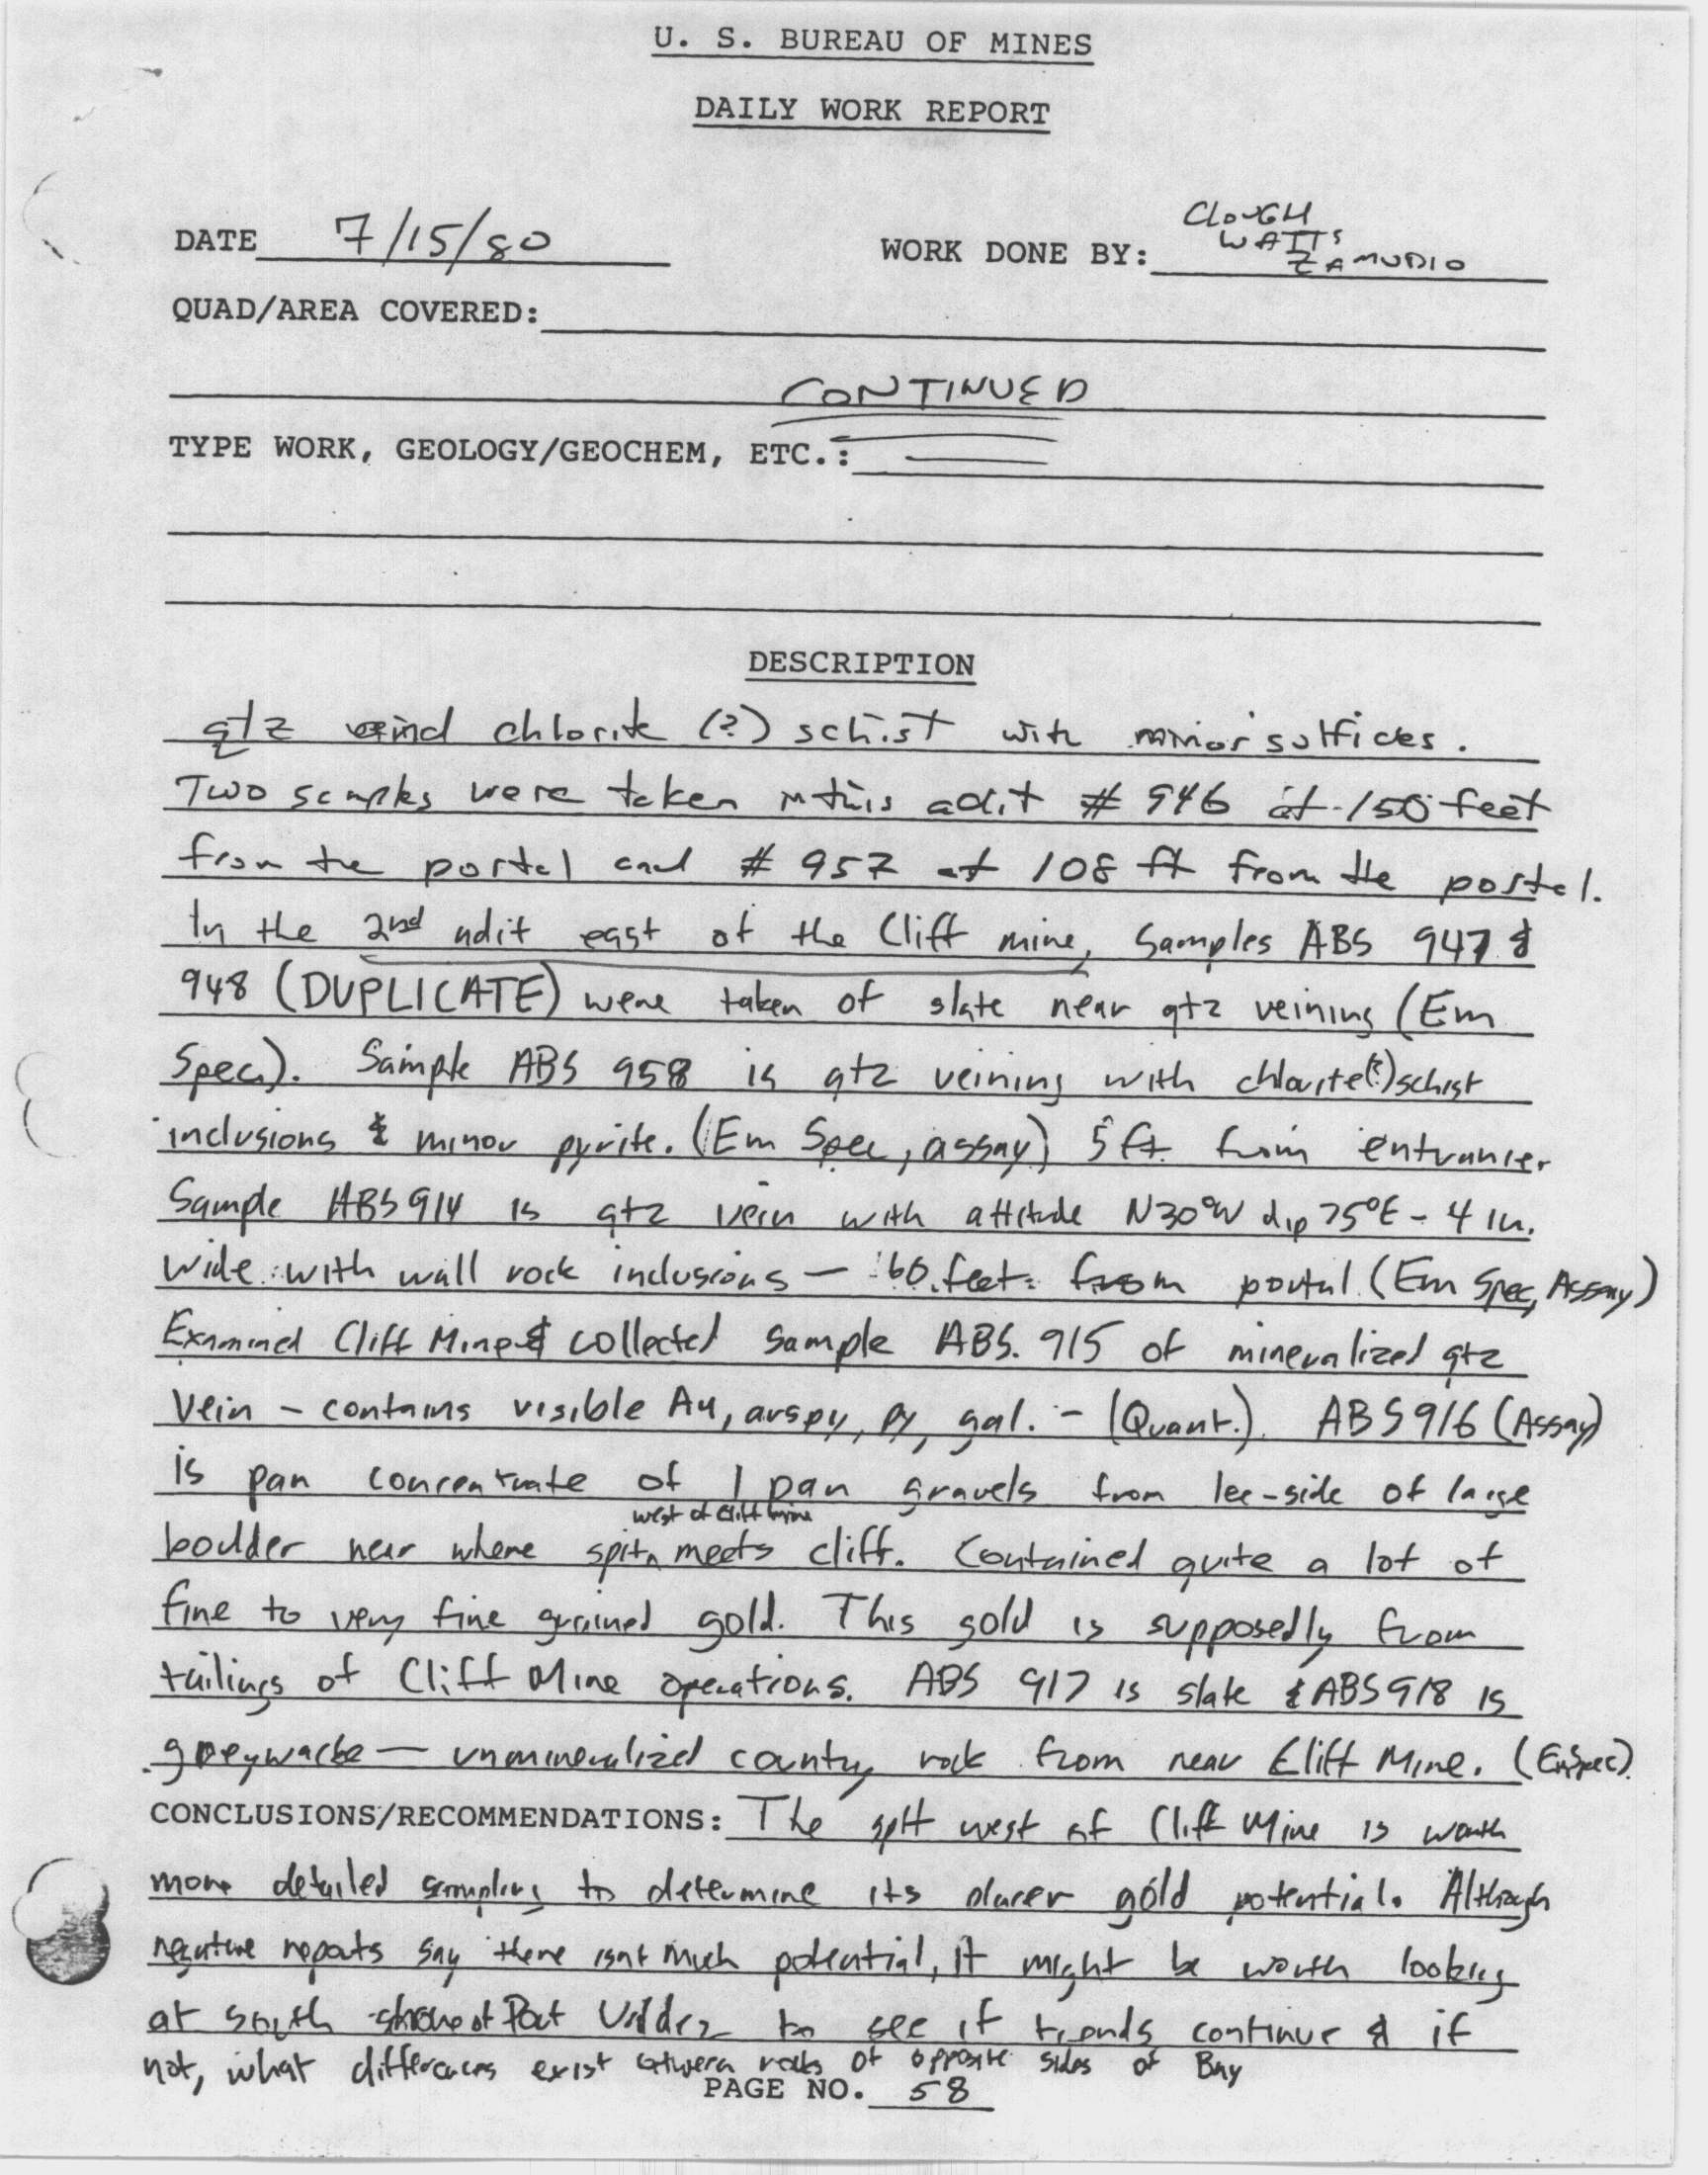 U. S. BUREAU OF MINES
DAILY WORK REPORT
CLOUGH
WATTS
DATE 7/15/80 WORK DONE BY: ZAMUDIO
QUAD/AREA COVERED:
CONTINUED
TYPE WORK, GEOLOGY/GEOCHEM, ETC.:
DESCRIPTION
qtz veind chlorite (?) schist with minor sulfides.
Two samples were taken in this adit # 946 at 150 feet
from the portal and # 957 at 108 ft from the portal.
In the 2nd adit east of the Cliff mine, Samples ABS 947 &
948 (DUPLICATE) were taken of slate near qtz veining (Em
Spec.). Sample ABS 958 is qtz veining with chlorite(?) schist
inclusions & minor pyrite. (Em Spec, assay) 5 ft. from entrance.
Sample ABS 914 is qtz vein with attitude N30°W dip 75°E - 4 in.
wide with wall rock inclusions — 60 feet from portal (Em Spec, Assay)
Examined Cliff Mine & collected sample ABS. 915 of mineralized qtz
vein - contains visible Au, arspy, py, gal. - (Quant.). ABS 916 (Assay)
is pan concentrate of 1 pan gravels from lee-side of large
west of Cliff mine
boulder near where spit meets cliff. Contained quite a lot of
fine to very fine grained gold. This gold is supposedly from
tailings of Cliff Mine operations. ABS 917 is slate & ABS 918 is
greywacke — unmineralized country rock from near Cliff Mine. (EmSpec).
CONCLUSIONS/RECOMMENDATIONS: The spit west of Cliff Mine is worth
more detailed sampling to determine its placer gold potential. Although
negative reports say there isnt much potential, it might be worth looking
at south shore of Port Valdez to see if trends continue & if
not, what differences exist between rocks of opposite sides of Bay
PAGE NO. 58